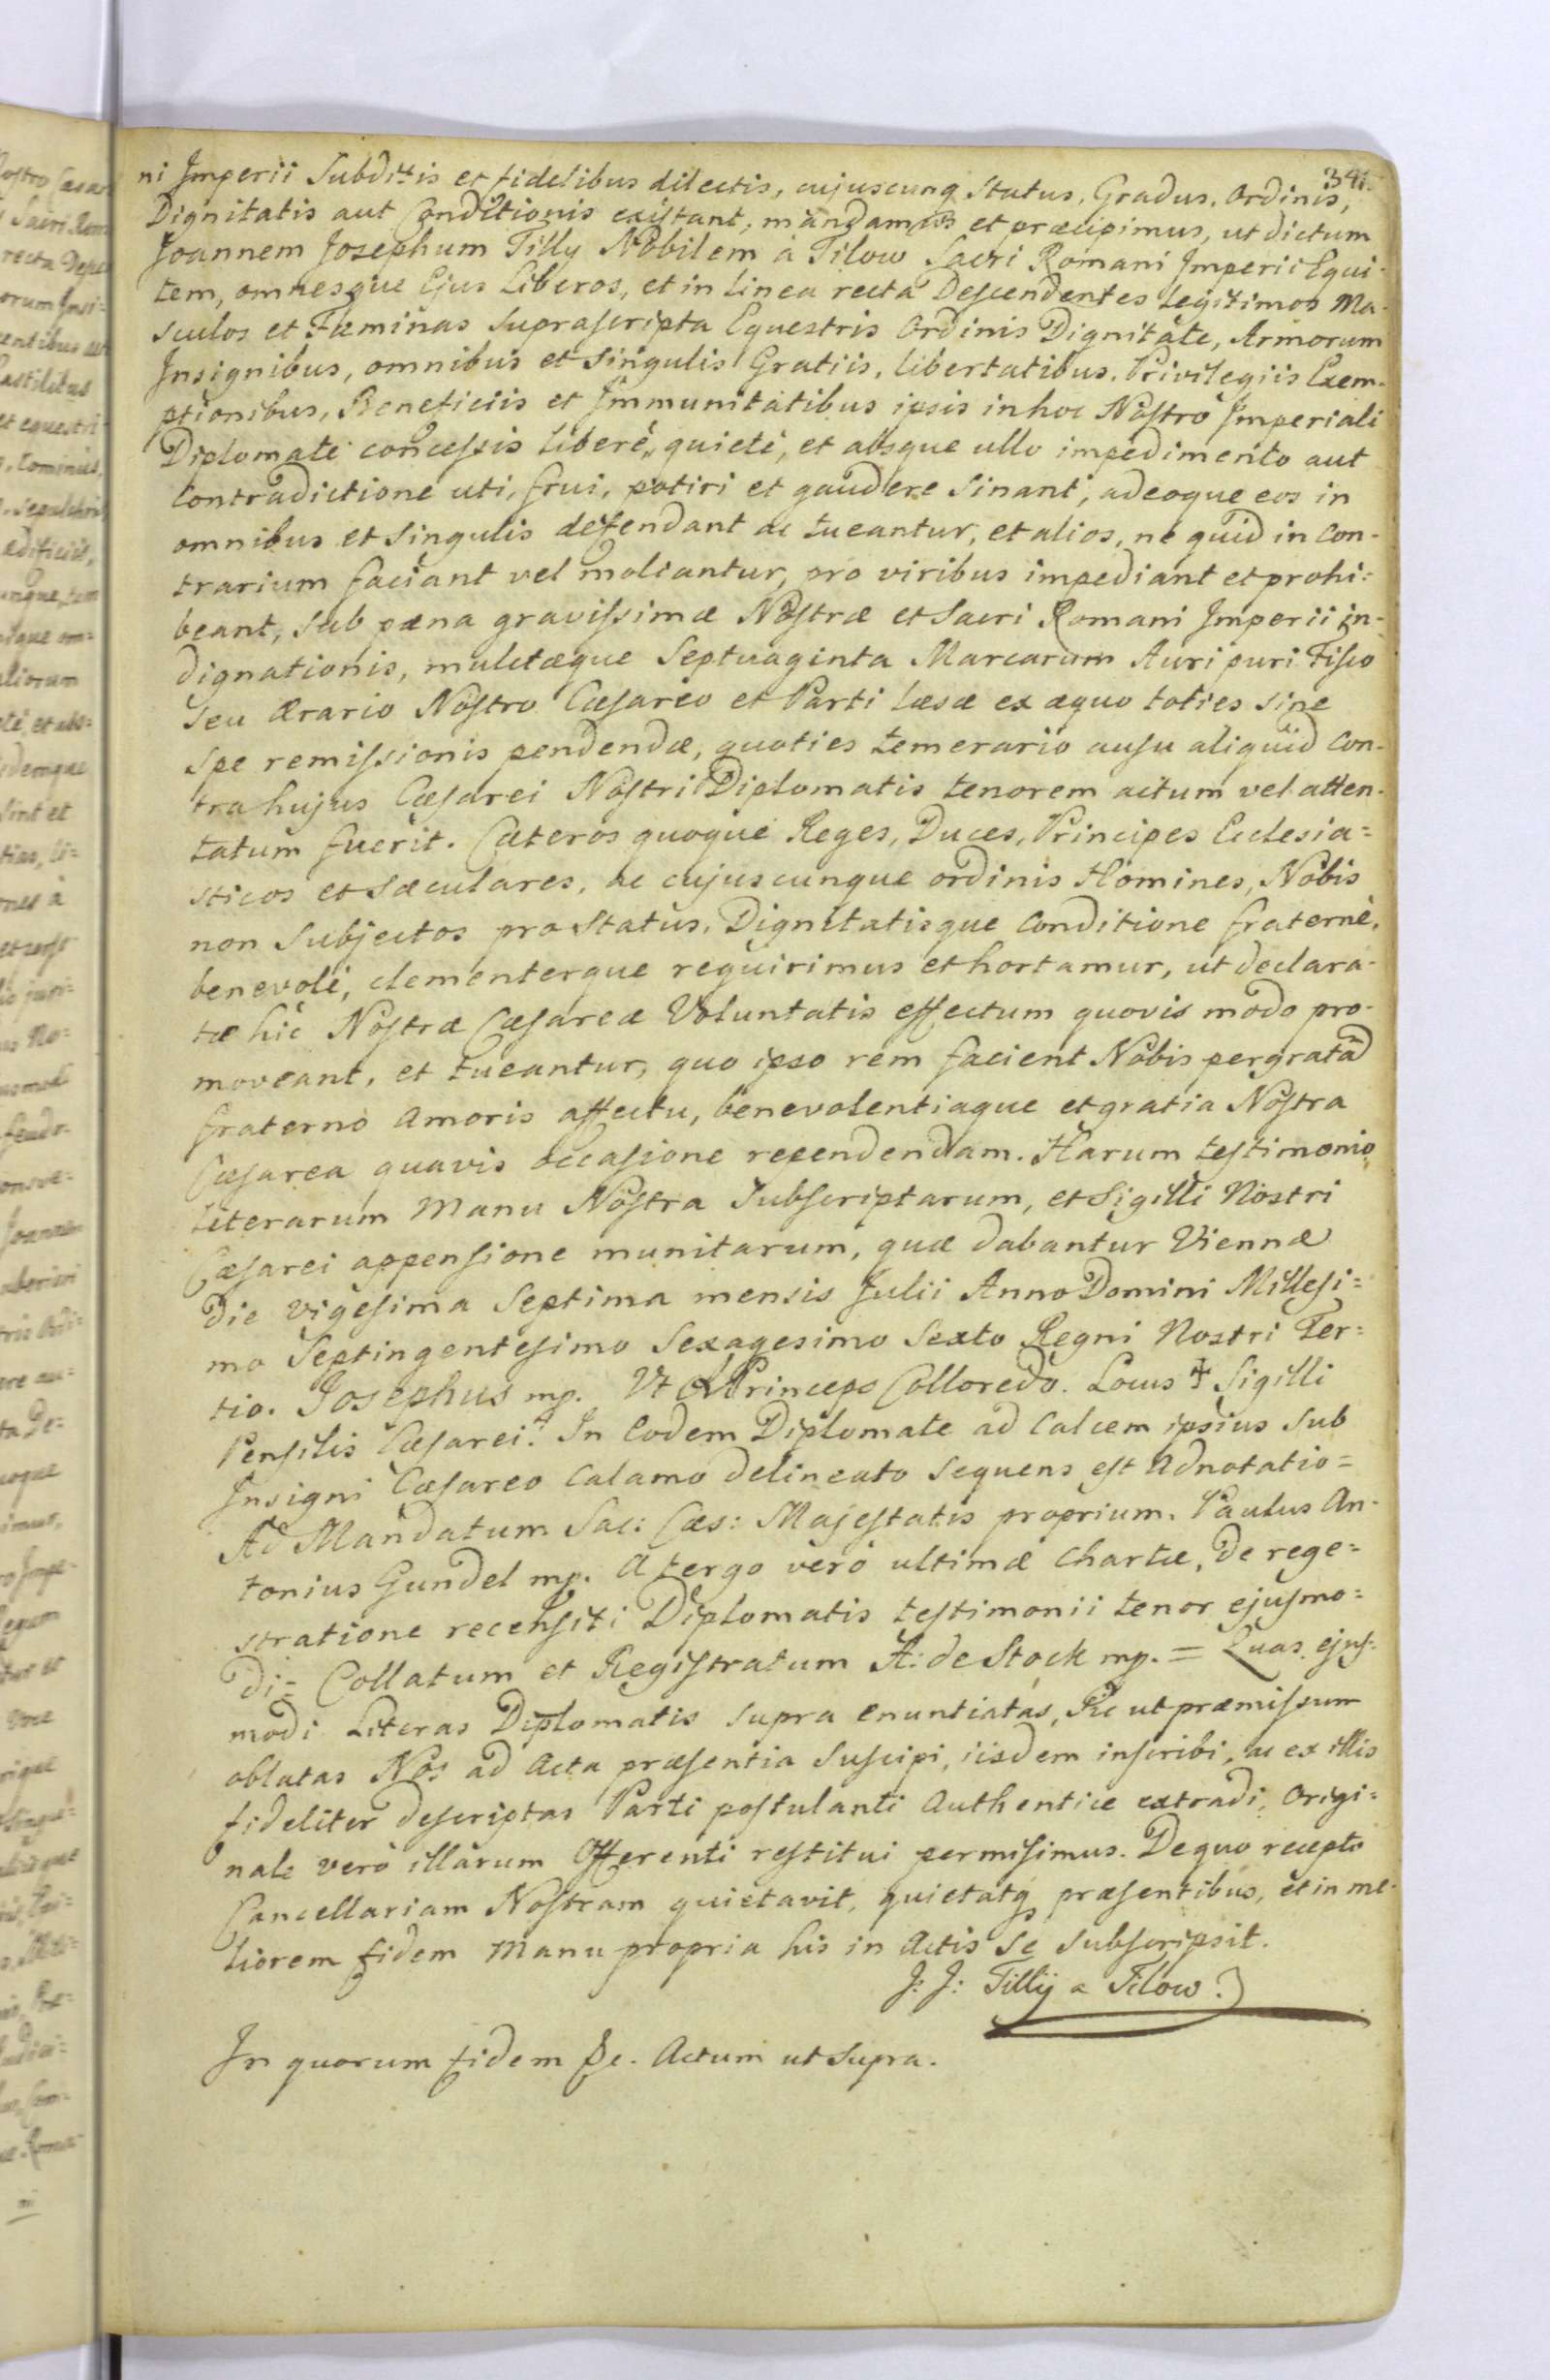 341.
ni Imperii Subditis et fidelibus dilectis, cujuscunq Status, Gradus, Ordinis,
Dignitatis aut Conditionis existant, mandamus et præcipimus, ut dictum
Joannem Josephum Tilly Nobilem à Tilow Sacri Romani Imperii Equi-
tem, omnesque Ejus Liberos, et in linea recta Descendentes legitimos Ma-
sculos et Fæminas suprascripta Equestris Ordinis Dignitate, Armorum
Insignibus, omnibus et singulis Gratiis, libertatibus, Privilegiis Exem-
ptionibus, Beneficiis et Immunitatibus ipsis in hoc Nostro Imperiali
Diplomate concessis liberè, quietè, et absque ullo impedimento aut
Contradictione uti, frui, potiri et gaudere sinant, adeoque eos in
omnibus et singulis defendant ac tueantur, et alios, ne quid in con-
trarium faciant vel moliantur, pro viribus impediant et prohi=
beant, sub pæna gravissimæ Nostræ et Sacri Romani Imperii in-
dignationis, mulctæque Septuaginta Marcarum Auri puri Fisco
seu Ærario Nostro Cæsareo et Parti læsæ ex æquo toties sine
spe remissionis pendendæ, quoties temerario ausu aliquid con-
tra hujus Cæsarei Nostri Diplomatis tenorem actum vel atten-
tatum fuerit. Cæteros quoque Reges, Duces, Principes Ecclesia=
sticos et Sæculares, ac cujuscunque ordinis Homines, Nobis
non Subjectos pro Status, Dignitatisque Conditione fraternè,
benevolè, clementerque requirimus et hortamur, ut declara-
tæ hic Nostræ Cæsareæ Voluntatis effectum quovis modo pro-
moveant, et tueantur, quo ipso rem facient Nobis pergratã
fraterno Amoris affectu, benevolentiaque et gratia Nostra
Cæsarea quavis occasione rependendam. Harum testimonio
Literarum Manu Nostra Subscriptarum, et Sigilli Nostri
Cæsarei appensione munitarum, quæ dabantur Viennæ
Die vigesima Septima mensis Julii Anno Domini Millesi=
mo Septingentesimo Sexagesimo Sexto Regni Nostri Ter=
tio. Josephus mp. Vt Princeps Colloredo. Locus ☩ Sigilli
Pensilis Cæsarei. In Eodem Diplomate ad Calcem ipsius sub
Insigni Cæsareo Calamo delineato sequens est Adnotatio=
Ad Mandatum Sac: Cæs: Majestatis proprium. Paulus An-
tonius Gundel mp. A tergo verò ultimæ Chartæ, de rege=
stratione recensiti Diplomatis testimonii tenor ejusmo=
di= Collatum et Registratum A: de Stock mp. = Quas ejus=
modi Literas Diplomatis supra enuntiatas, sic ut præmissum
oblatas Nos ad Acta præsentia suscipi, iisdem inscribi, ac ex illis
fideliter descriptas Parti postulanti Authentice extradi, Origi=
nale verò illarum Offerenti restitui permisimus. De quo recepto
Cancellariam Nostram quietavit, quietatq præsentibus, et in me-
liorem fidem Manu propria his in Actis se subscripsit.
J: J: Tilly a Tilow.
In quorum fidem &c. Actum ut supra.